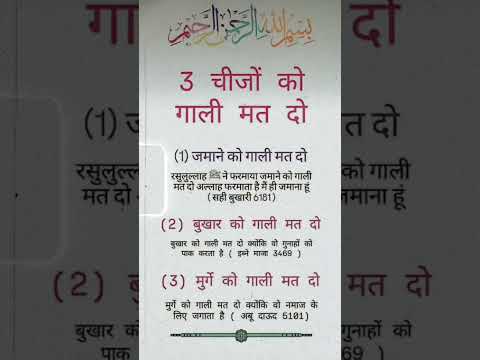 بسم الله الرحمن الرحيم
3 चीजों को
गाली मत दो
(1) जमाने को गाली मत दो
रसुलुल्लाह ﷺ ने फरमाया जमाने को गाली
मत दो अल्लाह फरमाता है मैं ही जमाना हूं
( सही बुखारी 6181)
(2) बुखार को गाली मत दो
बुखार को गाली मत दो क्योंकि वो गुनाहों को
पाक करता है ( इब्ने माजा 3469 )
(3) मुर्गे को गाली मत दो
मुर्गे को गाली मत दो क्योंकि वो नमाज के
लिए जगाता है ( अबू दाऊद 5101)